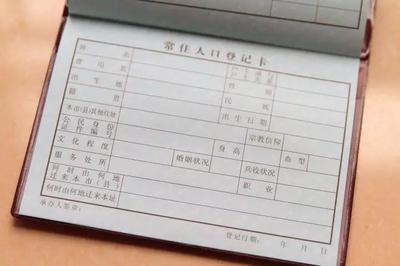 常住人口登记卡
姓名
户主或与户主关系
曾用名
性别
出生地
民族
籍贯
出生日期
本市(县)其他住址
宗教信仰
公民身份证件编号
身高
血型
文化程度
婚姻状况
兵役状况
服务处所
职业
何时由何地迁来本市(县)
何时由何地迁来本址
承办人签章:
登记日期: 年 月 日